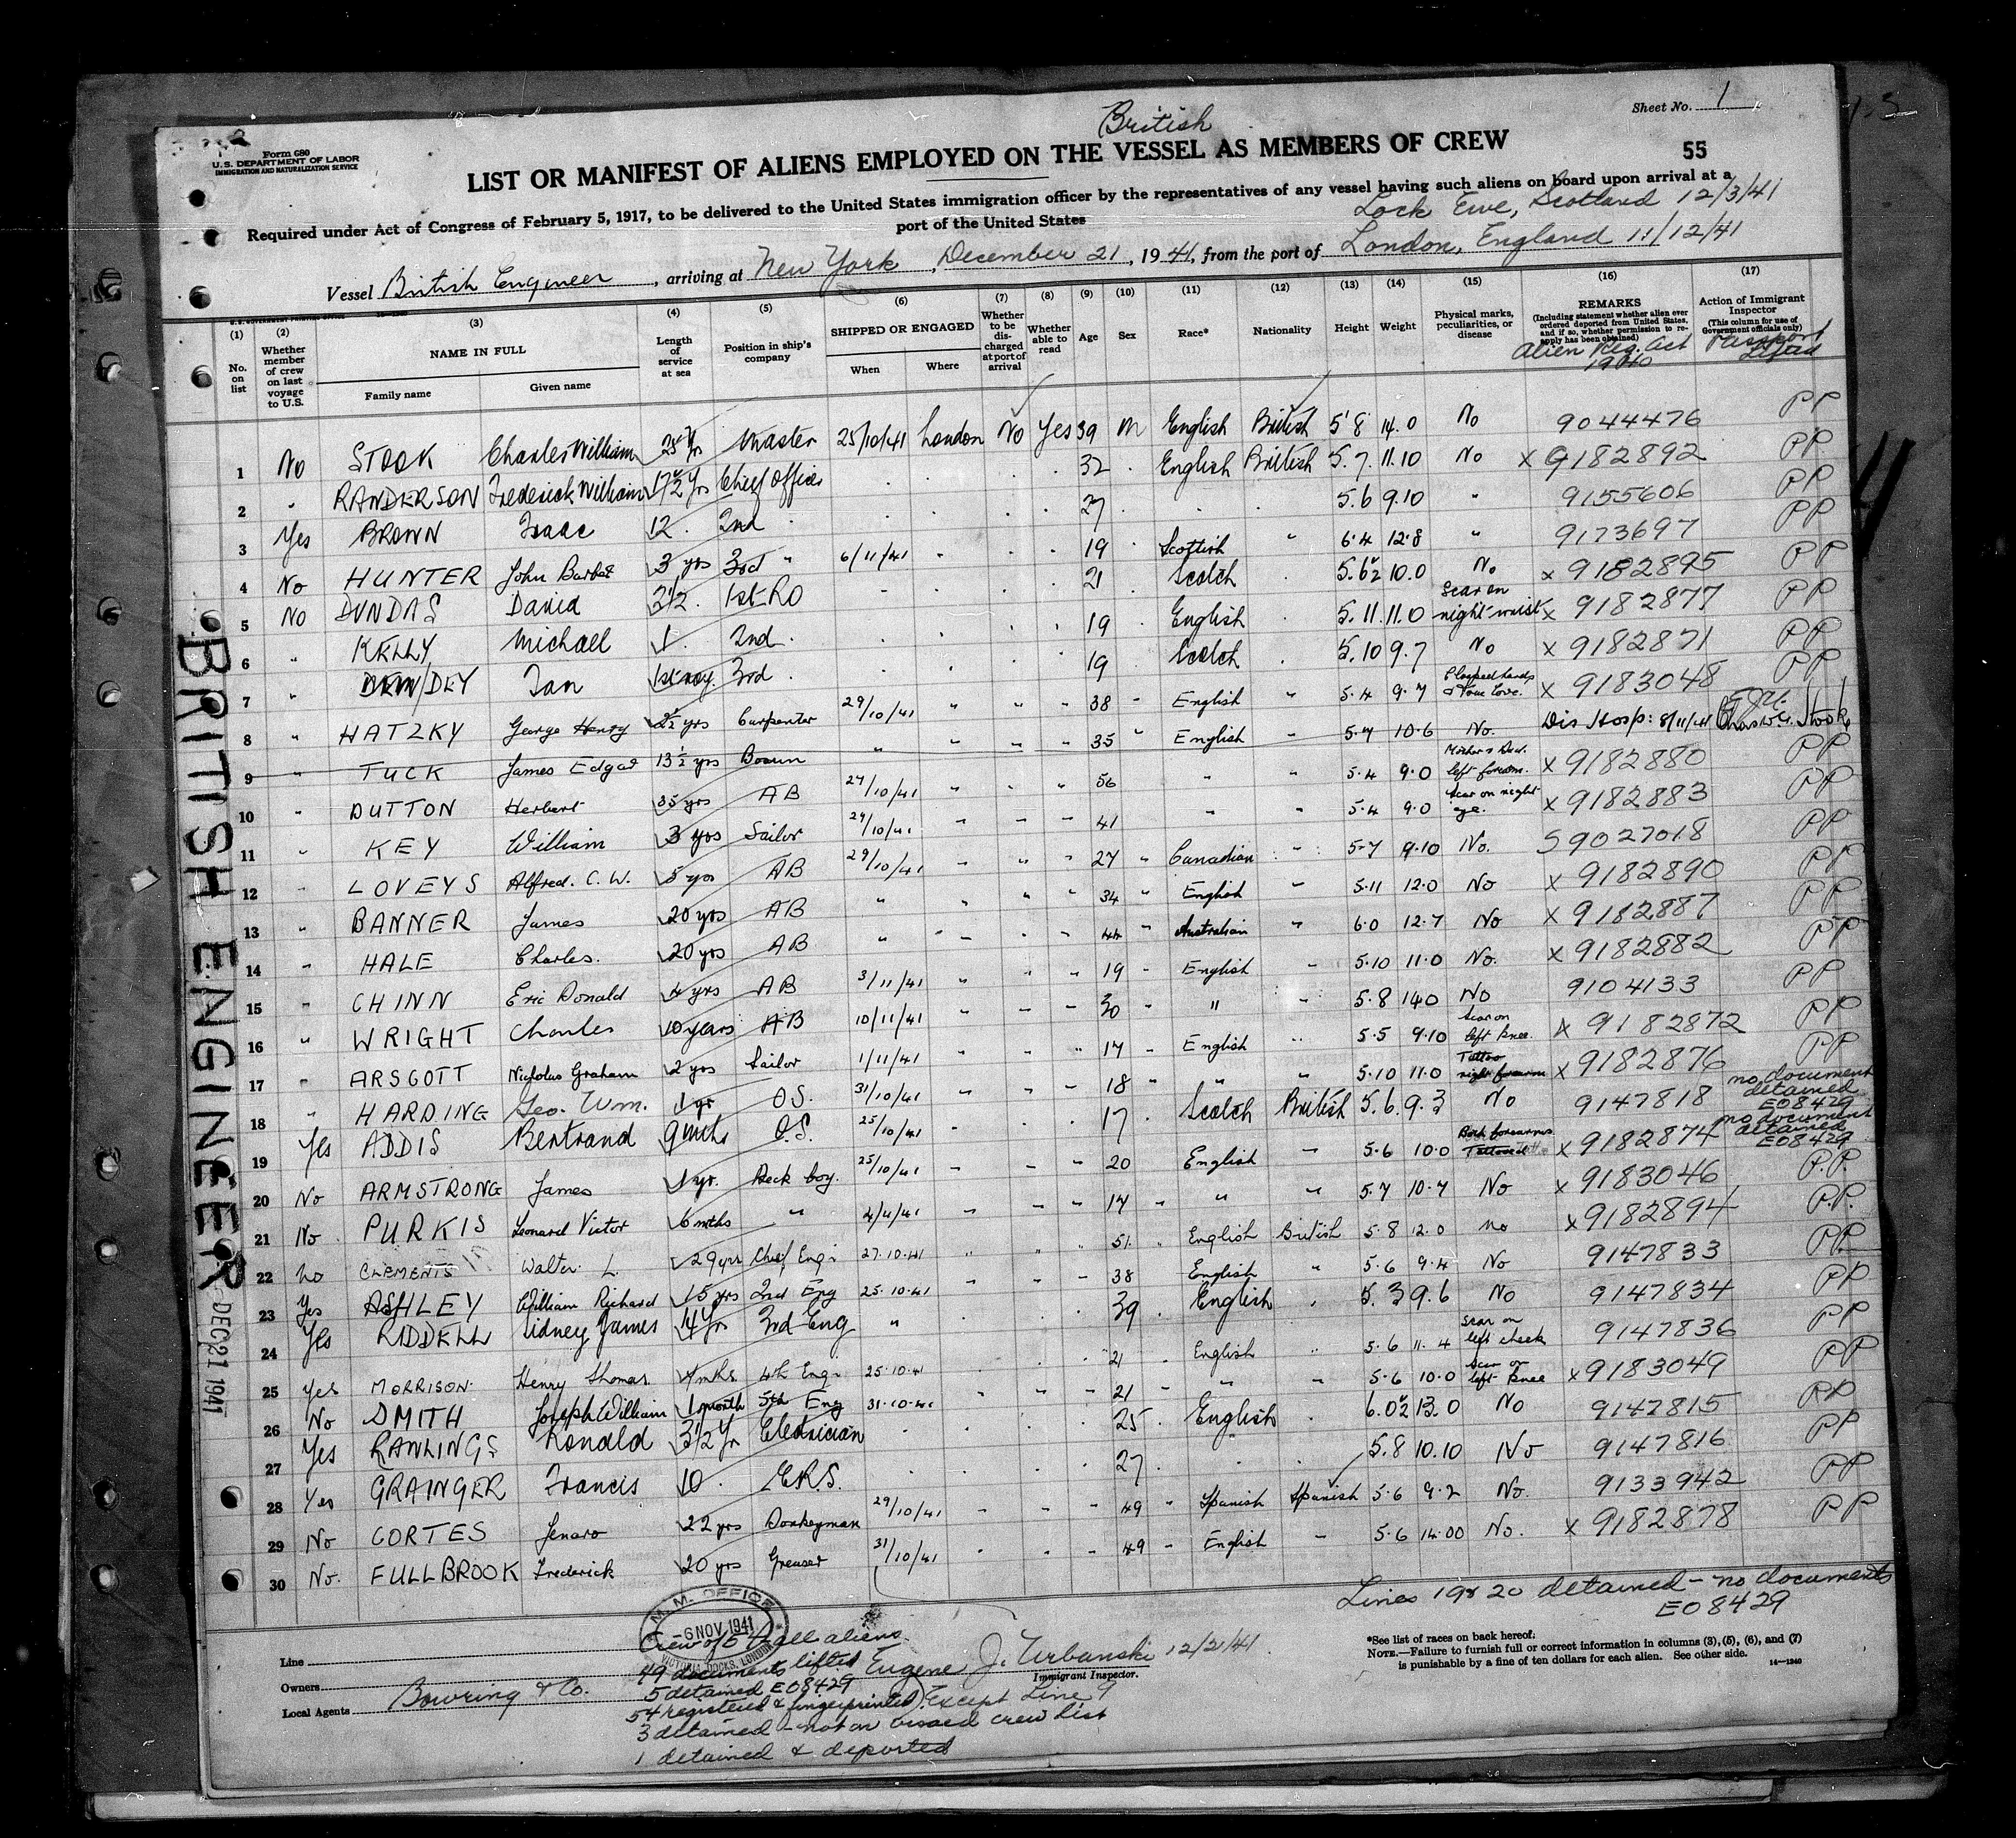 British
Sheet No. 1
Form 680
U.S. DEPARTMENT OF LABOR
IMMIGRATION AND NATURALIZATION SERVICE
55
LIST OR MANIFEST OF ALIENS EMPLOYED ON THE VESSEL AS MEMBERS OF CREW
Required under Act of Congress of February 5, 1917, to be delivered to the United States immigration officer by the representatives of any vessel having such aliens on board upon arrival at a
port of the United States
Lock Ewe, Scotland 12/3/41
Vessel British Engineer, arriving at New York, December 21, 1941, from the port of London, England 11/12/41
(1) (2) (3) (4) (5) (6) (7) (8) (9) (10) (11) (12) (13) (14) (15) (16) (17)
No. on list
Whether member of crew on last voyage to U.S.
NAME IN FULL
Family name
Given name
Length of service at sea
Position in ship's company
SHIPPED OR ENGAGED
When
Where
Whether to be discharged at port of arrival
Whether able to read
Age
Sex
Race*
Nationality
Height
Weight
Physical marks, peculiarities, or disease
REMARKS
(Including statement whether alien ever ordered deported from United States, and if so, whether permission to reapply has been obtained)
Alien Reg. Act 1940
Action of Immigrant Inspector
(This column for use of Government officials only)
Passport Lifted
1 No STOOK Charles William 25 Yrs Master 25/10/41 London No Yes 39 M English British 5'8 14.0 No 9044476 PP
2 " RANDERSON Frederick William 17½ Yrs Chief Officer 32 English British 5.7 11.10 No X 9182892 PP
3 Yes BROWN Isaac 12 2nd 27 5.6 9.10 " 9155606 PP
4 No HUNTER John 3 yrs 3rd " 6/11/41 19 Scottish " 6.4 12.8 " 9173697 PP
5 No DUNDAS David 3½ 1st RO 21 Scotch 5.6½ 10.0 No X 9182895 PP
6 " KELLY Michael 1 2nd 19 English 5.11 11.0 Scar on right wrist X 9182877 PP
7 " DEY Ian 1st voy. 3rd 19 Scotch 5.10 9.7 No X 9182871 PP
8 " HATZKY George Henry yrs Carpenter 29/10/41 " " " 38 " English " 5.4 9.7 Clasped hands & True Love. X 9183048 PP
9 " TUCK James Edgar 13½ yrs Bosun " " " " 35 " English " 5.7 10.6 No. Dis. Hosp: 8/11/41 Chas. W. Stook
10 " DUTTON Herbert 35 yrs AB 27/10/41 " " " 56 " " 5.4 9.0 left forearm. X 9182880 PP
11 " KEY William 3 yrs Sailor 29/10/41 " " " 41 " " 5.4 9.0 Scar on right eye. X 9182883 PP
12 " LOVEYS Alfred. C. W. 5 yrs AB 29/10/41 " " " 27 " Canadian " 5.7 9.10 No. 59027018 PP
13 " BANNER James 20 yrs AB " " " " 34 " English " 5.11 12.0 No X 9182890 PP
14 " HALE Charles. 20 yrs AB " " " " 44 " Australian " 6.0 12.7 No X 9182887 PP
15 " CHINN Eric Donald 4 yrs AB 3/11/41 " " " 19 " English " 5.10 11.0 No. X 9182882 PP
16 " WRIGHT Charles 10 years AB 10/11/41 " " " 30 " " " 5.8 140 No 9104133 PP
17 " ARSCOTT Nicholas Graham 2 yrs Sailor 1/11/41 " " " 17 " English " 5.5 9.10 Scar on left knee. X 9182872 PP
18 " HARDING Geo. Wm. 1 yr O.S. 31/10/41 " " " 18 " " " 5.10 11.0 Tattoo right forearm X 9182876 PP
19 Yes ADDIS Bertrand 9 mths O.S. 25/10/41 17 Scotch British 5.6. 9.3 No 9147818 no document detained E08429
20 No ARMSTRONG James 1 yr. Deck boy. 25/10/41 " " " 20 English " 5.6 10.0 Both forearms Tattooed X 9182874 no document detained E08429
21 No PURKIS Leonard Victor 6 mths " 4/11/41 " " " 17 " " " 5.7 10.7 No X 9183046 P.P.
22 no CLEMENTS Walter L. 29 yrs Chief Eng. 27.10.41 " " " 51 " English British 5.8 12.0 no X 9182894 P.P.
23 Yes ASHLEY William Richard 15 yrs 2nd Eng 25.10.41 " " " 38 English " 5.6 9.4 No 9147833 PP
24 Yes RIDDELL Sidney James 14 Yrs 3rd Eng " 39 English 5.3 9.6 No 9147834 PP
25 Yes MORRISON Henry Thomas 4 mths 4th Eng. 25.10.41 21 English " 5.6 11.4 Scar on left cheek 9147836 PP
26 No SMITH Joseph William 1 month 5th Eng 31.10.41 " " " 21 " " " 5.6 10.0 Scar on left knee X 9183049 PP
27 Yes RAWLINGS Ronald 3½ Yr Electrician 25 English 6.0½ 13.0 No 9147815 PP
28 Yes GRAINGER Francis 10 E.R.S. 27 5.8 10.10 No 9147816 PP
29 No CORTES Jenaro 22 yrs Donkeyman 29/10/41 " " " 49 " Spanish Spanish 5.6 9.2 No. 9133942 PP
30 No. FULLBROOK Frederick 20 yrs Greaser 31/10/41 " " " 49 " English " 5.6 14.00 No. X 9182878 PP
BRITISH ENGINEER
DEC 21 1941
Lines 19 & 20 detained - no documents
E08429
M. M. OFFICE
6 NOV 1941
VICTORIA DOCKS, LONDON
Crew of 57 all aliens
49 documents lifted
5 detained E08429
54 registered & fingerprinted) Except Line 9
3 detained - not on visaed crew list
1 detained & deported
Eugene J. Urbanski 12/21/41
Immigrant Inspector.
Line
Owners
Local Agents Bowring & Co.
*See list of races on back hereof.
NOTE.—Failure to furnish full or correct information in columns (3), (5), (6), and (7)
is punishable by a fine of ten dollars for each alien. See other side. 14—1240